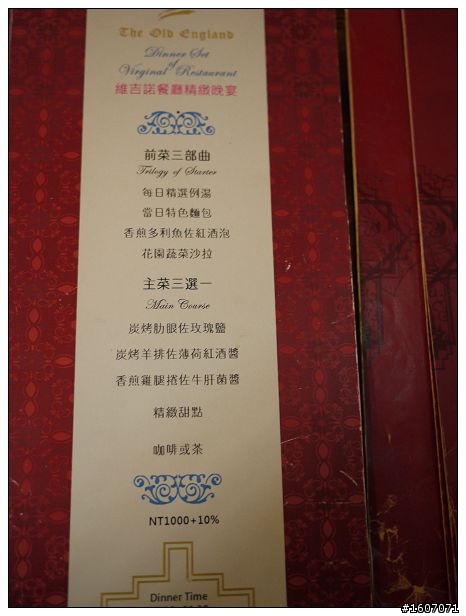 The Old England
Dinner Set
of
Virginal Restaurant
維吉諾餐廳精緻晚宴
前菜三部曲
Trilogy of Starter
每日精選例湯
當日特色麵包
香煎多利魚佐紅酒泡
花園蔬菜沙拉
主菜三選一
Main Course
炭烤肋眼佐玫瑰鹽
炭烤羊排佐薄荷紅酒醬
香煎雞腿捲佐牛肝菌醬
精緻甜點
咖啡或茶
NT1000+10%
Dinner Time
#1607071